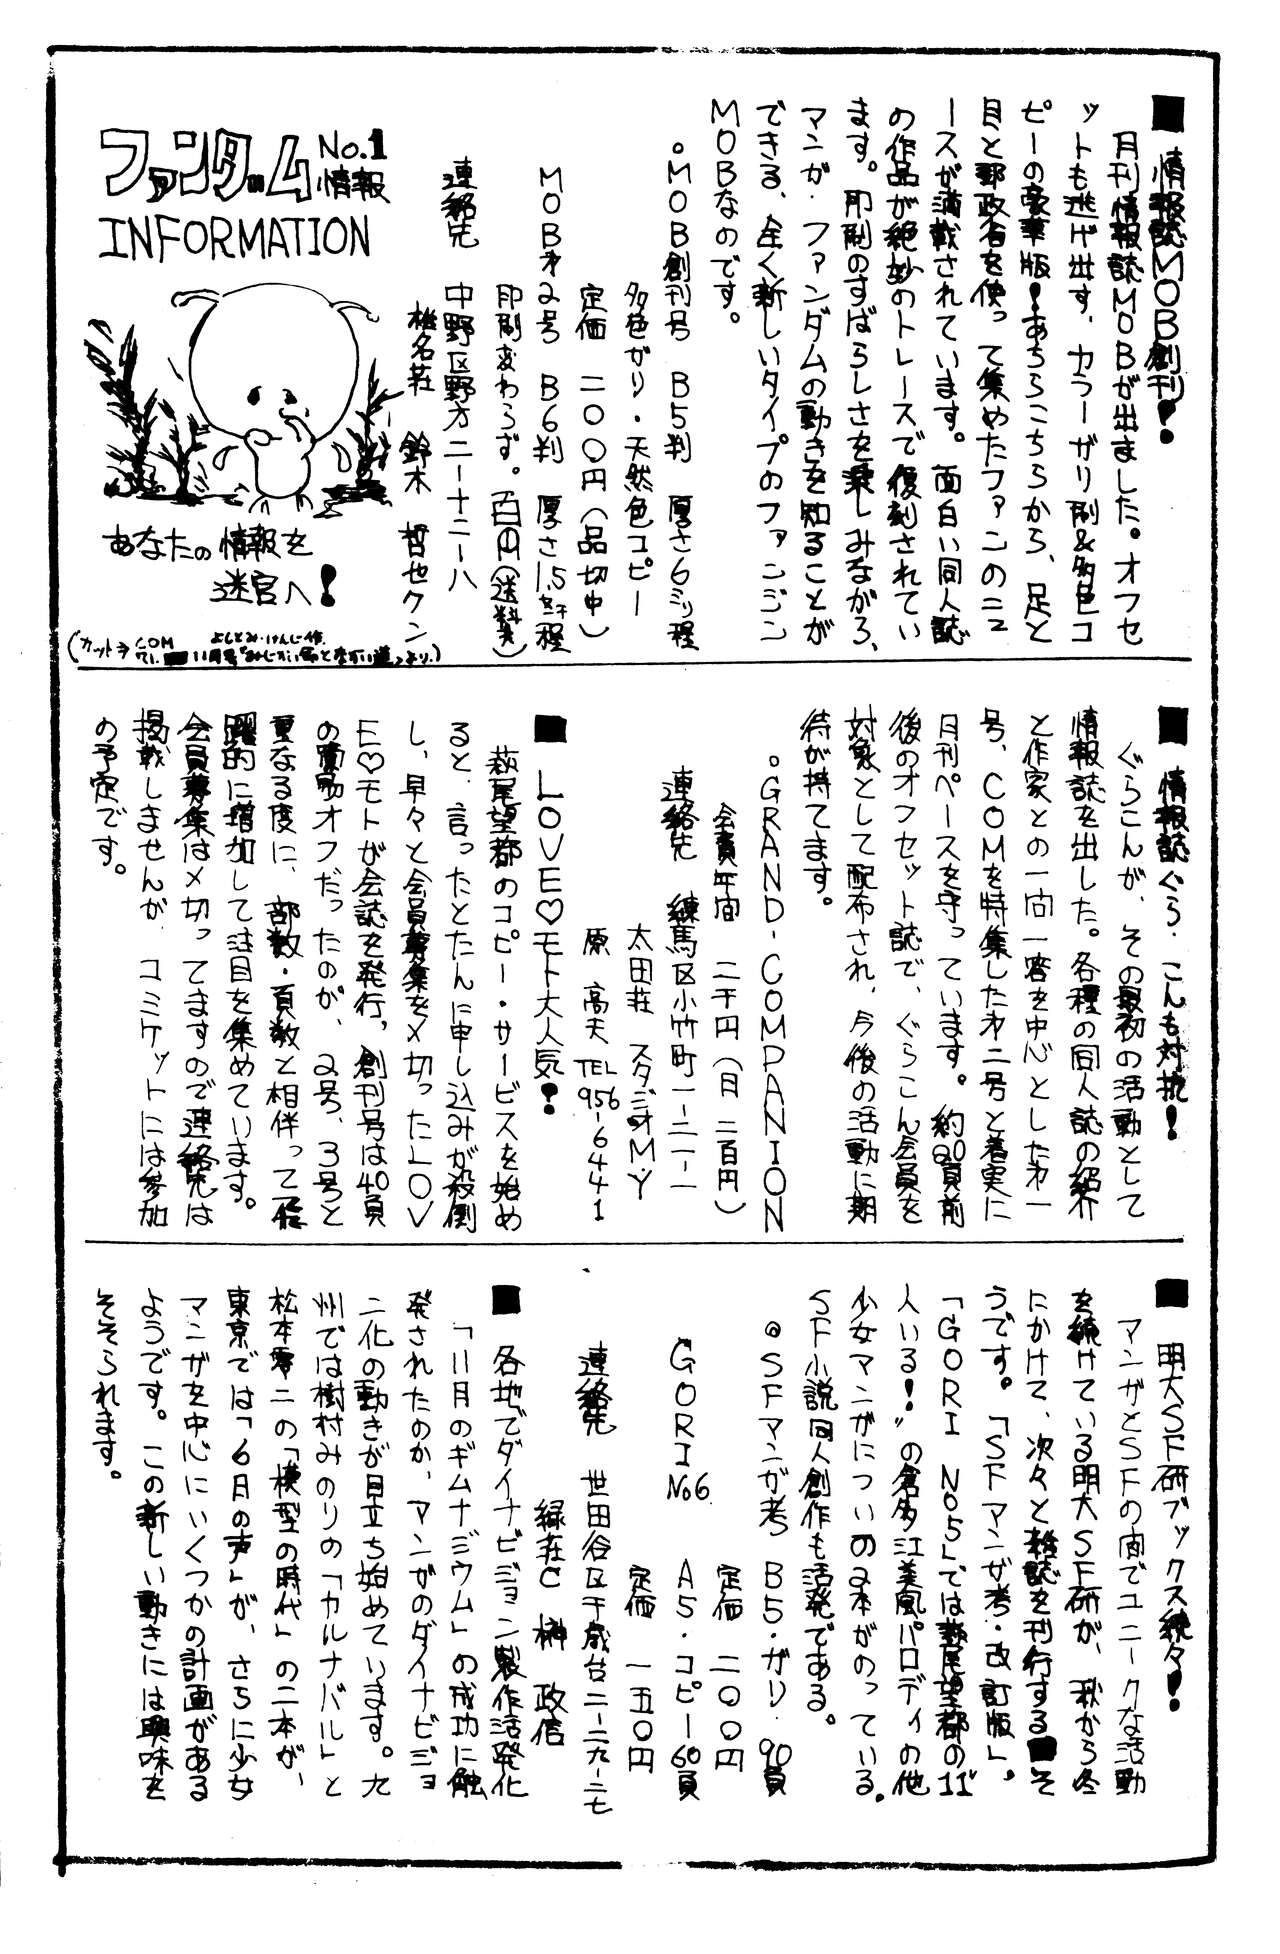 ■情報誌MOB創刊!
月刊情報誌MOBが出ました。オフセ
ットも逃げ出す、カラーガリ刷&多色コ
ピーの豪華版!あちらこちらから、足と
目と郵政省を使って集めたファンのニュ
ースが満載されています。面白い同人誌
の作品が絶妙のトレースで復刻されてい
ます。印刷のすばらしさを楽しみながら、
マンガ・ファンダムの動きを知ることが
できる、全く新しいタイプのファンジン
MOBなのです。
・MOB創刊号 B5判 厚さ6ミリ程
多色ガリ・天然色コピー
定価 二〇〇円(品切中)
MOBオ2号 B6判 厚さ1.5ミリ程
印刷変わらず。百円(送料共)
連絡先 中野区野方二ー十二ー八
椎名荘 鈴木 哲也クン
ファンダム情報 No.1
INFORMATION
あなたの情報を
迷宮へ!
(カットヲ COM '71. 11月号 よしとみ・けんじ作「みじかい風とながい道」より.)
■情報誌ぐら・こんも対抗!
ぐらこんが、その最初の活動として
情報誌を出した。各種の同人誌の紹介
と作家との一問一答を中心としたオ一
号、COMを特集したオ二号と着実に
月刊ペースを守っています。約20頁前
後のオフセット誌で、ぐらこん会員を
対象として配布され、今後の活動に期
待が持てます。
・GRAND-COMPANION
会費年間 二千円(月 二百円)
連絡先 練馬区小竹町一ー二一ー一
太田荘 スタジオM・Y
原 高夫 TEL 956-6441
■LOVE♡モト大人気!
萩尾望都のコピー・サービスを始め
ると、言ったとたんに申し込みが殺倒
し、早々と会員募集を〆切ったLOV
E♡モトが会誌を発行、創刊号は40頁
の簡易オフだったのが、2号、3号と
重なる度に、部数・頁数と相伴って飛
躍的に増加して注目を集めています。
会員募集は〆切ってますので連絡先は
掲載しませんが、コミケットには参加
の予定です。
■明大SF研ブックス続々!
マンガとSFの間でユニークな活動
を続けている明大SF研が、秋から冬
にかけて、次々と雑誌を刊行する■そ
うです。「SFマンガ考・改訂版」、
「GORI No5」では萩尾望都の"11
人いる!"の倉多江美風パロディの他
少女マンガについの2本がのっている。
SF小説同人創作も活発である。
◎SFマンガ考 B5・ガリ・90頁
定価 二〇〇円
GORI No.6 A5・コピー60頁
定価 一五〇円
連絡先 世田谷区千歳台二ー二九ー二七
緑荘C 榊 政信
■各地でダイナビジョン製作活発化
「11月のギムナジウム」の成功に触
発されたのか、マンガのダイナビジョ
ン化の動きが目立ち始めています。九
州では樹村みのりの「カルナバル」と
松本零二の「模型の時代」の二本が、
東京では「6月の声」が、さらに少女
マンガを中心にいくつかの計画がある
ようです。この新しい動きには興味を
そそられます。